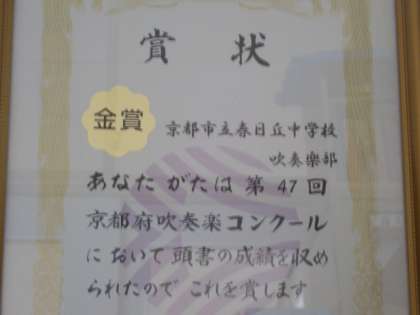 賞状
金賞
京都市立春日丘中学校
吹奏楽部
あなたがたは第47回
京都府吹奏楽コンクール
において頭書の成績を収め
られたのでこれを賞します